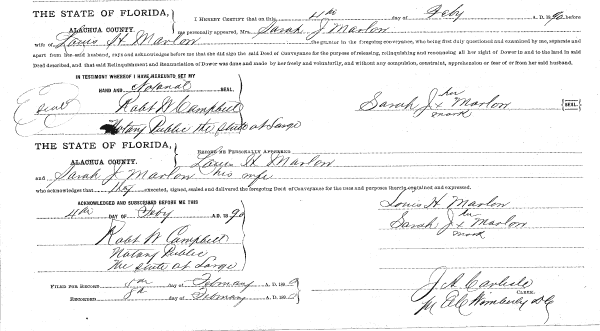 THE STATE OF FLORIDA,
ALACHUA COUNTY.
I HEREBY CERTIFY that on this 4th day of Feby A. D. 1890, before
me personally appeared, Mrs. Sarah J Marlow
wife of Louis H Marlow the grantor in the foregoing conveyance, who being first duly questioned and examined by me, separate and
apart from the said husband, says and acknowledges before me that she did sign the said Deed of Conveyance for the purpose of releasing, relinquishing and renouncing all her right of Dower in and to the land in said
Deed described, and that said Relinquishment and Renunciation of Dower was done and made by her freely and voluntarily, and without any compulsion, constraint, apprehension or fear of or from her said husband.
IN TESTIMONY WHEREOF I HAVE HEREUNTO SET MY
HAND AND Notarial SEAL.
Seal
Robt W Campbell
Notary Public the State at Large
her
Sarah J x Marlow
mark
SEAL
THE STATE OF FLORIDA,
ALACHUA COUNTY.
BEFORE ME PERSONALLY APPEARED
Louis H Marlow
and Sarah J Marlow his wife
who acknowledges that they executed, signed, sealed and delivered the foregoing Deed of Conveyance for the uses and purposes therein contained and expressed.
ACKNOWLEDGED AND SUBSCRIBED BEFORE ME THIS
4th DAY OF Feby A. D. 1890
Louis H Marlow
her
Sarah J x Marlow
mark
Robt W Campbell
Notary Public
the State at Large
FILED FOR RECORD day of February A. D. 18
RECORDED 8th day of February A. D. 18
J. A. Carlisle
CLERK.
Wimberly D C